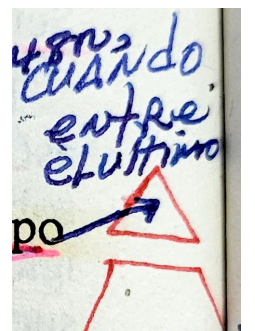 CUANDO
entRe
èlultimo
po